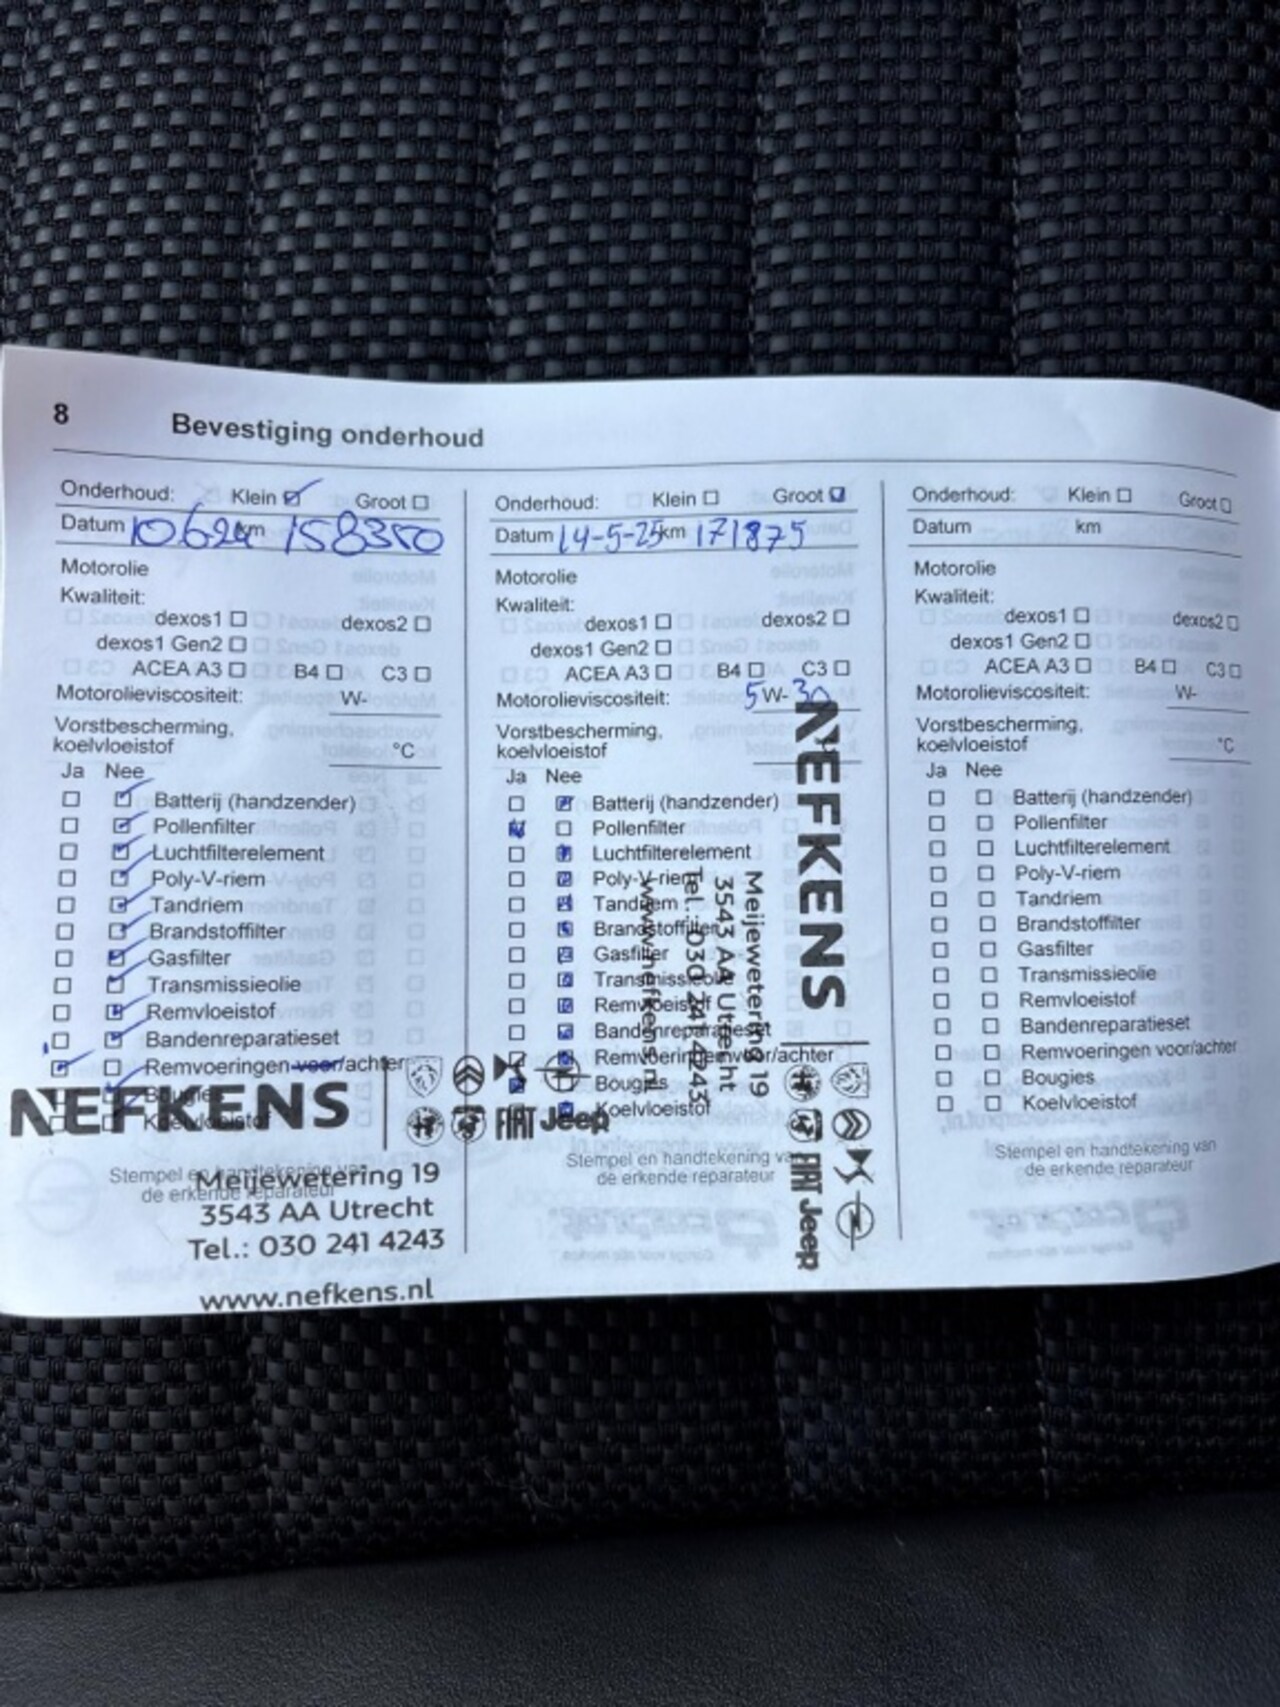 8 Bevestiging onderhoud
Onderhoud: Klein ☑ Groot ☐
Datum 10624 km 158350
Motorolie
Kwaliteit:
dexos1 ☐ dexos2 ☐
dexos1 Gen2 ☐
ACEA A3 ☐ B4 ☐ C3 ☐
Motorolieviscositeit: W-
Vorstbescherming,
koelvloeistof °C
Ja Nee
☐ ☑ Batterij (handzender)
☐ ☑ Pollenfilter
☐ ☑ Luchtfilterelement
☐ ☑ Poly-V-riem
☐ ☑ Tandriem
☐ ☑ Brandstoffilter
☐ ☑ Gasfilter
☐ ☑ Transmissieolie
☐ ☑ Remvloeistof
☐ ☑ Bandenreparatieset
☑ ☐ Remvoeringen voor/achter
Bougies
Koelvloeistof
Stempel en handtekening van
de erkende reparateur
NEFKENS
FIAT Jeep
Meijewetering 19
3543 AA Utrecht
Tel.: 030 241 4243
www.nefkens.nl
Onderhoud: Klein ☐ Groot ☑
Datum 14-5-25 km 171875
Motorolie
Kwaliteit:
dexos1 ☐ dexos2 ☐
dexos1 Gen2 ☐
ACEA A3 ☐ B4 ☐ C3 ☐
Motorolieviscositeit: 5W-30
Vorstbescherming,
koelvloeistof
Ja Nee
☐ ☑ Batterij (handzender)
☑ ☐ Pollenfilter
☐ ☑ Luchtfilterelement
☐ ☑ Poly-V-riem
☐ ☑ Tandriem
☐ ☑ Brandstoffilter
☐ ☑ Gasfilter
☐ ☑ Transmissieolie
☐ ☑ Remvloeistof
☐ ☑ Bandenreparatieset
☐ ☑ Remvoeringen voor/achter
☑ ☐ Bougies
☑ Koelvloeistof
Stempel en handtekening van
de erkende reparateur
NEFKENS
FIAT Jeep
Meijewetering 19
3543 AA Utrecht
Tel.: 030 241 4243
www.nefkens.nl
Onderhoud: Klein ☐ Groot ☐
Datum km
Motorolie
Kwaliteit:
dexos1 ☐ dexos2 ☐
dexos1 Gen2 ☐
ACEA A3 ☐ B4 ☐ C3 ☐
Motorolieviscositeit: W-
Vorstbescherming,
koelvloeistof °C
Ja Nee
☐ ☐ Batterij (handzender)
☐ ☐ Pollenfilter
☐ ☐ Luchtfilterelement
☐ ☐ Poly-V-riem
☐ ☐ Tandriem
☐ ☐ Brandstoffilter
☐ ☐ Gasfilter
☐ ☐ Transmissieolie
☐ ☐ Remvloeistof
☐ ☐ Bandenreparatieset
☐ ☐ Remvoeringen voor/achter
☐ ☐ Bougies
☐ ☐ Koelvloeistof
Stempel en handtekening van
de erkende reparateur